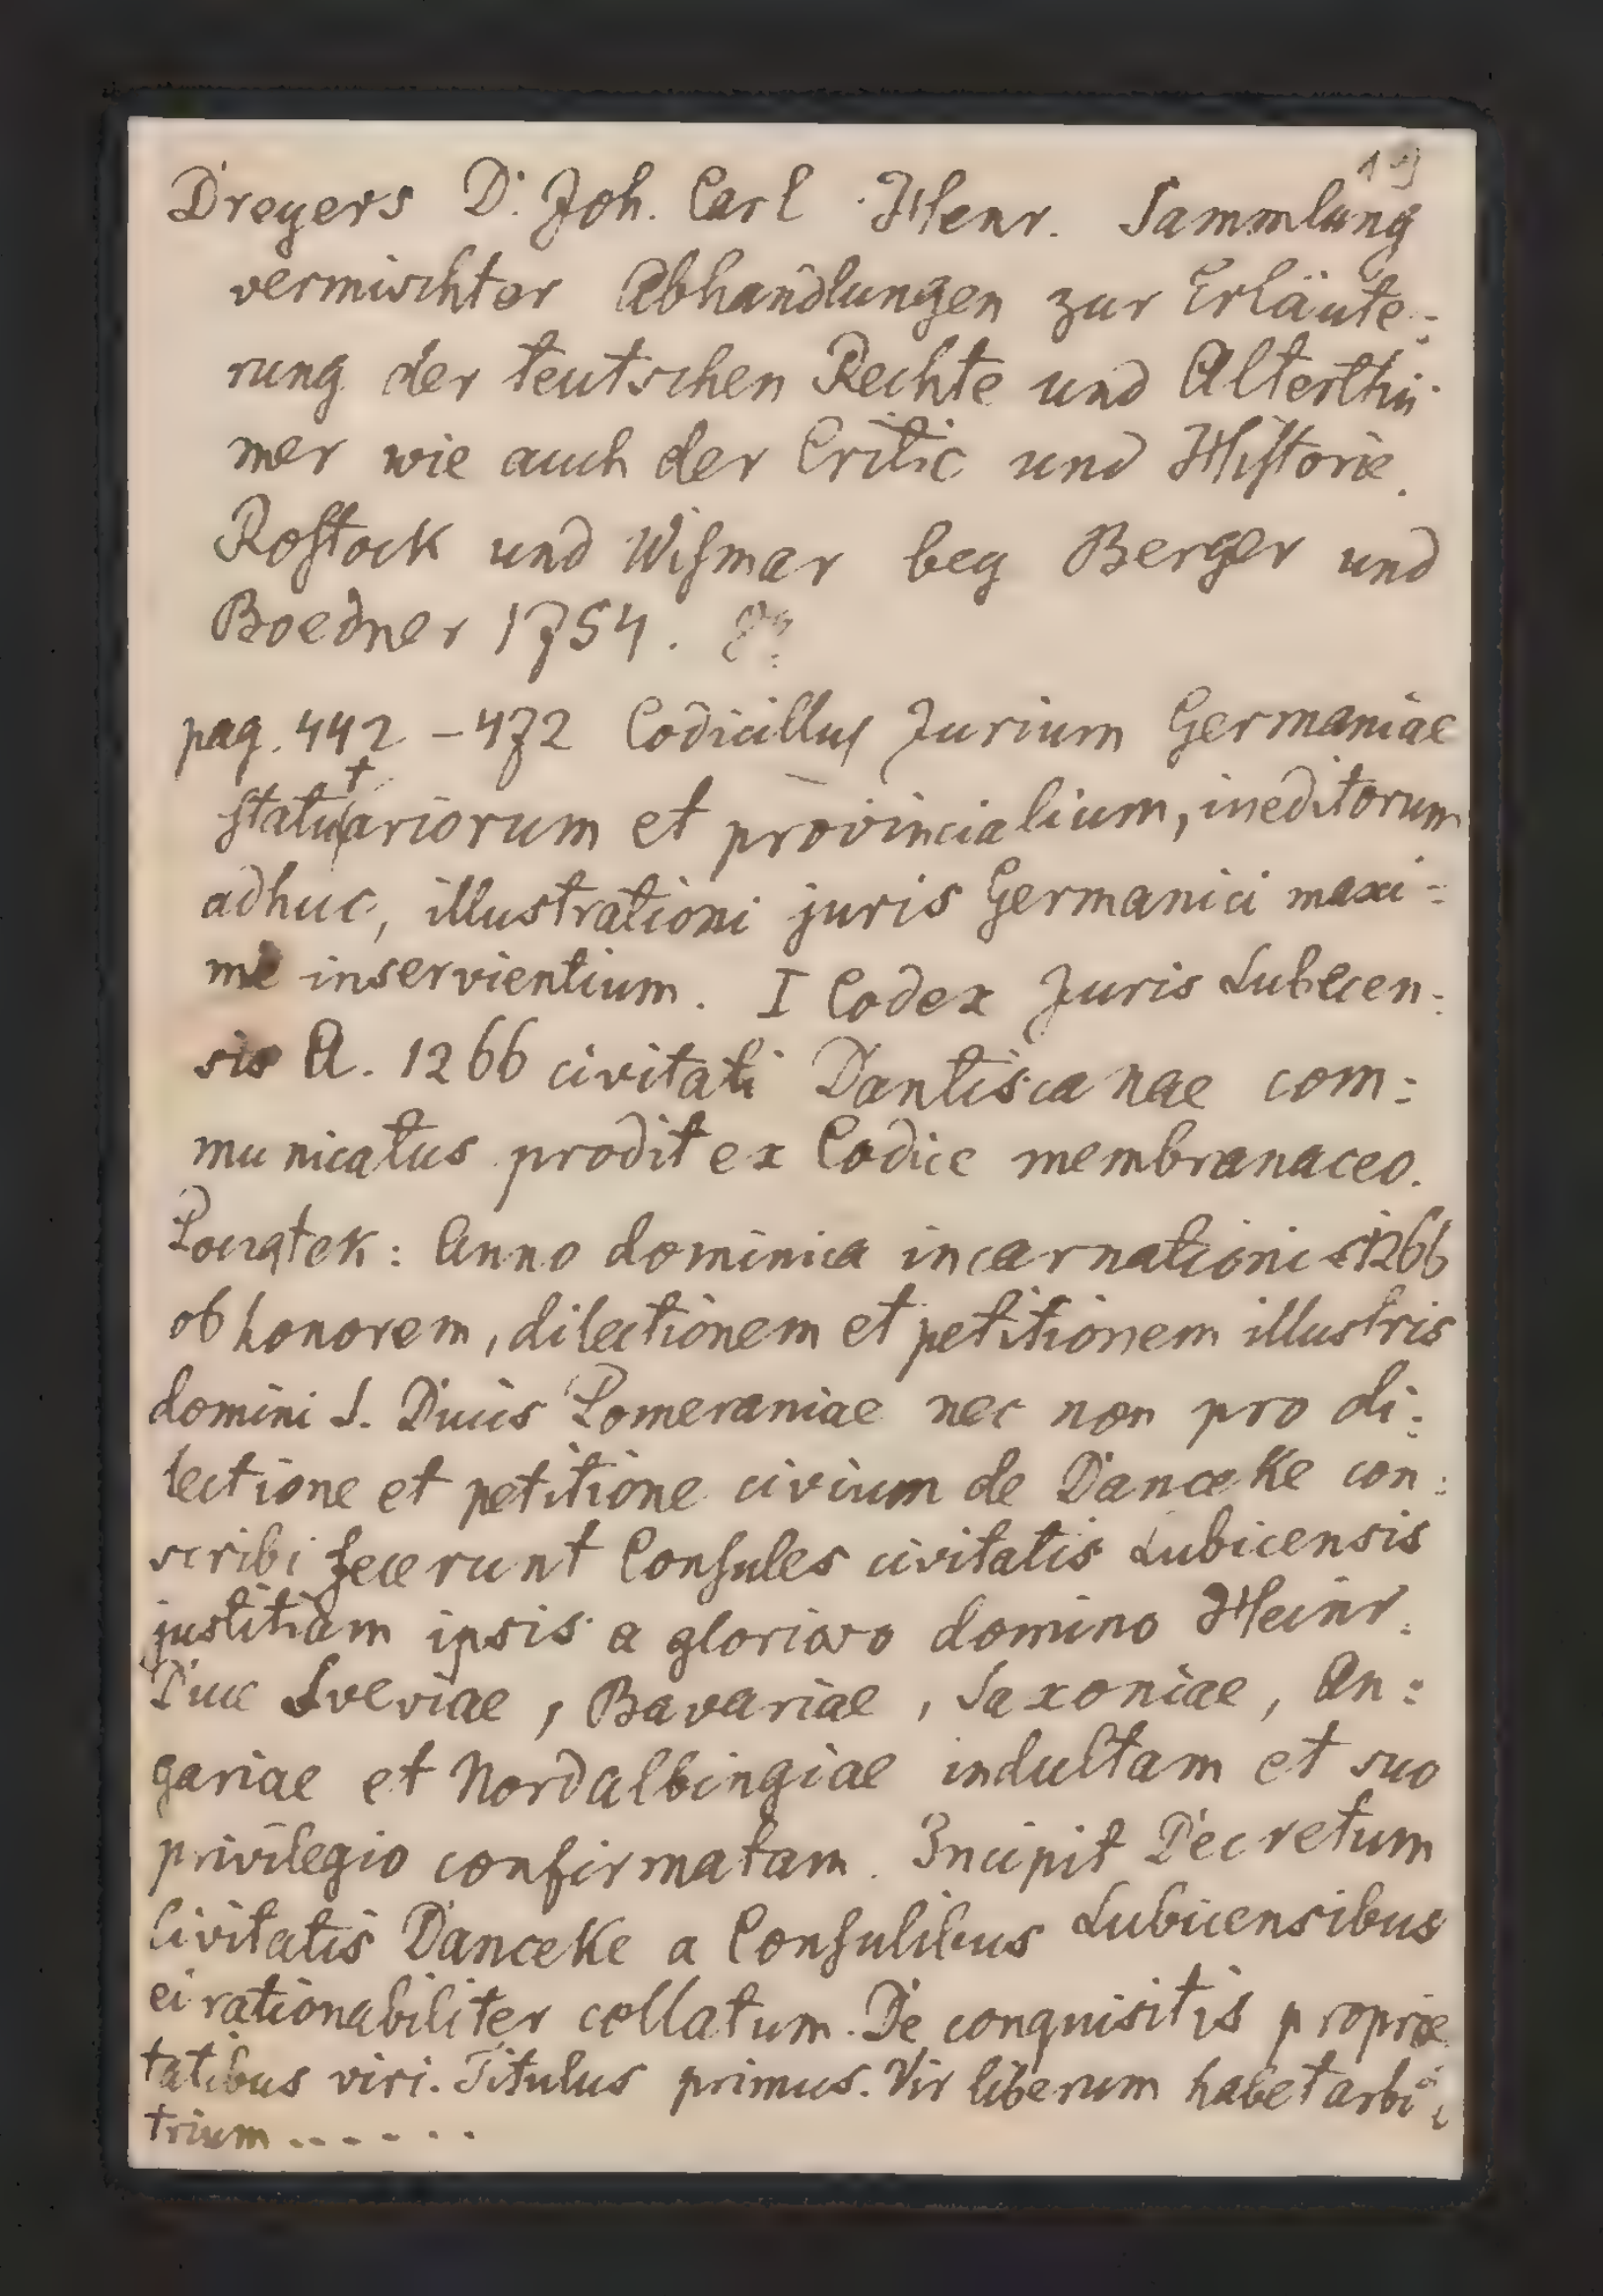 19
Dreyers D. Joh. Carl Henr. Sammlung
vermischter Abhandlungen zur Erläute:
rung der teutschen Rechte und Alterthü:
mer wie auch der Critic und Hiſtorie.
Roſtock und Wiſmar bey Berger und
Boedner 1754. 8º
pag. 442 – 472 Codicilluſ Jurium Germaniae
ſtatutariorum et provincialium, ineditorum
adhuc, illustrationi juris Germanici maxi:
me inservientium. I Codex Juris Lubecen:
sis A. 1266 civitati Dantiscanae com:
municatus prodit ex Codice membranaceo.
Początek: Anno dominica incarnationis 1266
ob honorem, dilectionem et petitionem illustris
domini S. Ducis Pomeraniae nec non pro di:
lectione et petitione civium de Danceke con:
scribi fecerunt Conſules civitatis Lubicensis
justitiam ipsis a glorioso domino Heinr.
Duce Sveviae, Bavariae, Saxoniae, An:
gariae et Nordalbingiae indultam et suo
privilegio confirmatam. Incipit Decretum
Civitatis Danceke a Conſulibus Lubicensibus
ei rationabiliter collatum. De conquisitis proprie
tatibus viri. Titulus primus. Vir liberum habet arbi:
trium . . . . . .